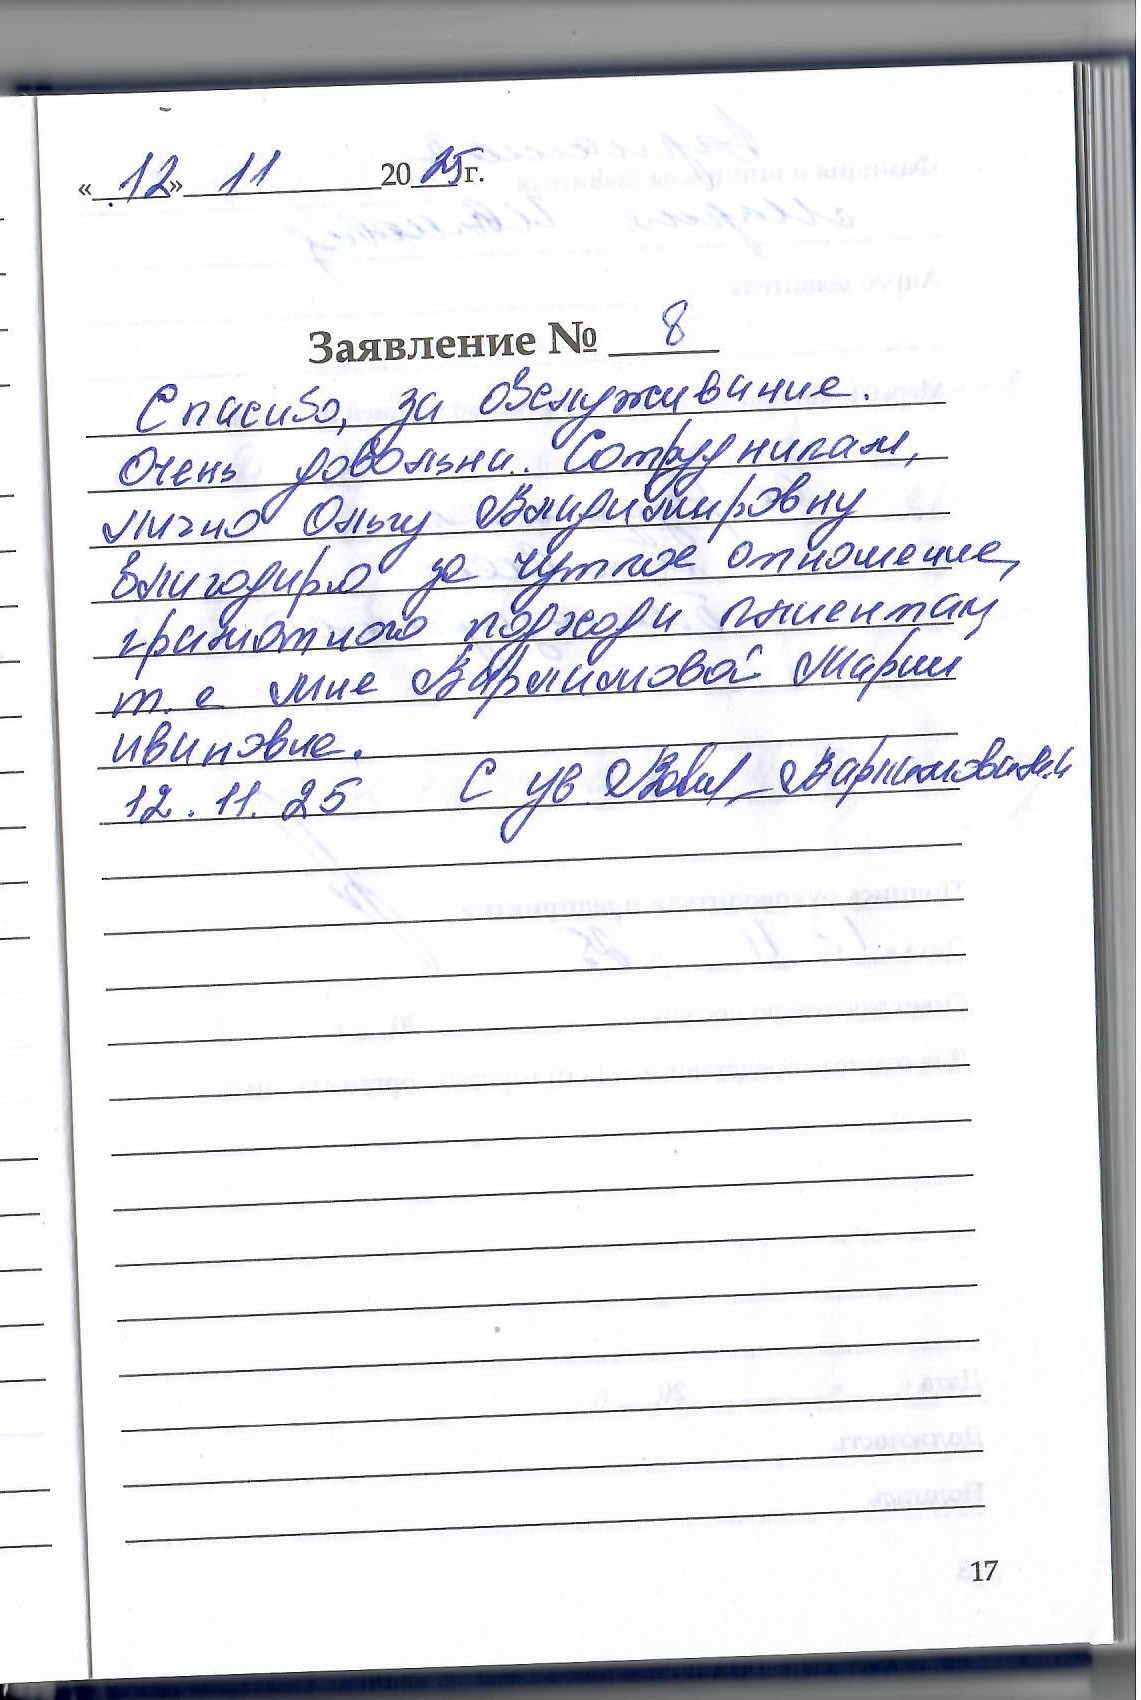 « 12 » 11 2025 г.
Заявление № 8
Спасибо, за обслуживание.
Очень довольна. Сотрудникам,
лично Ольгу Владимировну
благодарю за чуткое отношение,
грамотного подхода пациентам
т. е мне Варламовой Марии
ивановне.
12.11.25 С ув
17